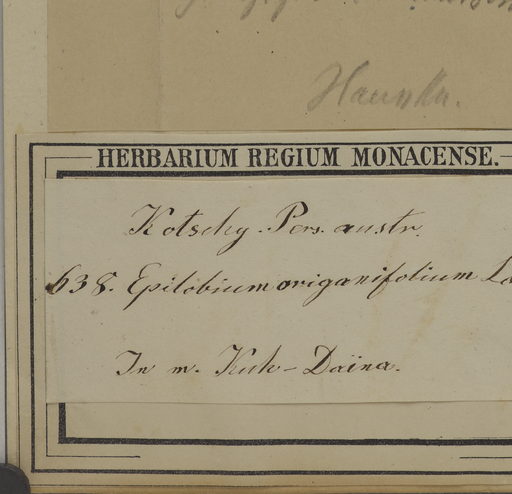 Hausskn.
HERBARIUM REGIUM MONACENSE.
Kotschy. Pers. austr.
638. Epilobium origanifolium La
In m. Kuh-Daïna.